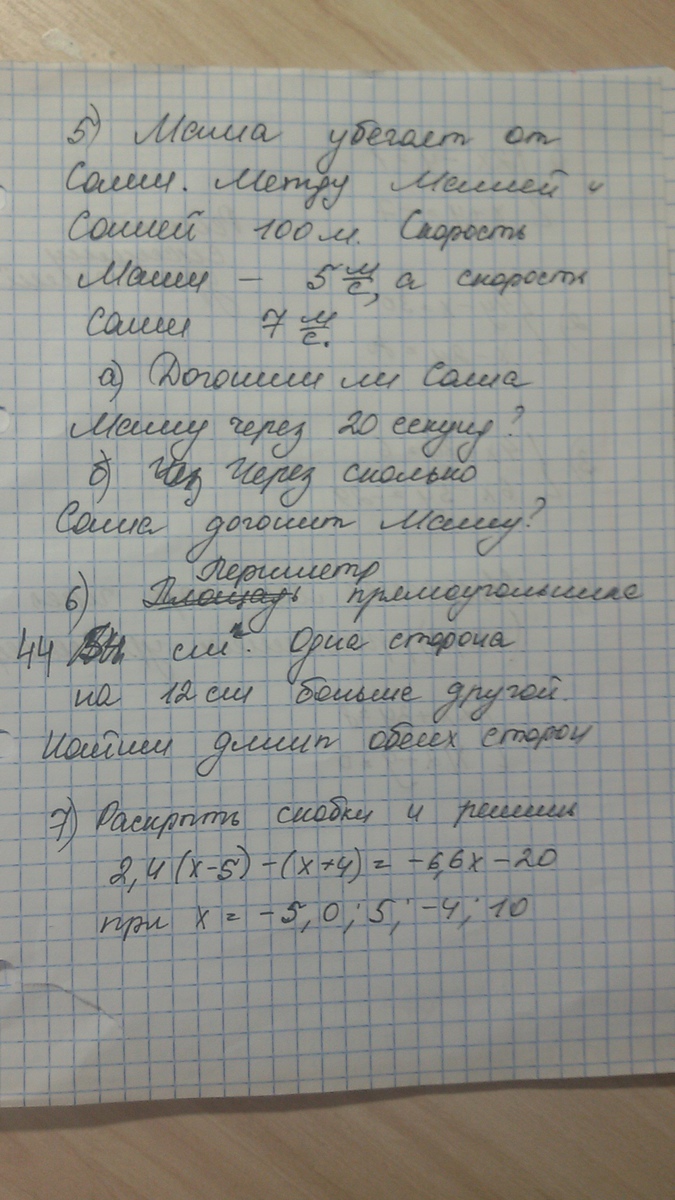 5) Маша убегает от
Саши. Между Машей и
Сашей 100 м. Скорость
Маши – 5 м/с, а скорость
Саши 7 м/с.
а) Догонит ли Саша
Машу через 20 секунд?
б) Через сколько
Саша догонит Машу?
6) Периметр прямоугольника
44 см. Одна сторона
на 12 см больше другой.
Найти длину обеих сторон
7) Раскрыть скобки и решить
2,4(x-5)-(x+4)= -6,6x-20
при x = -5, 0; 5; -4; 10